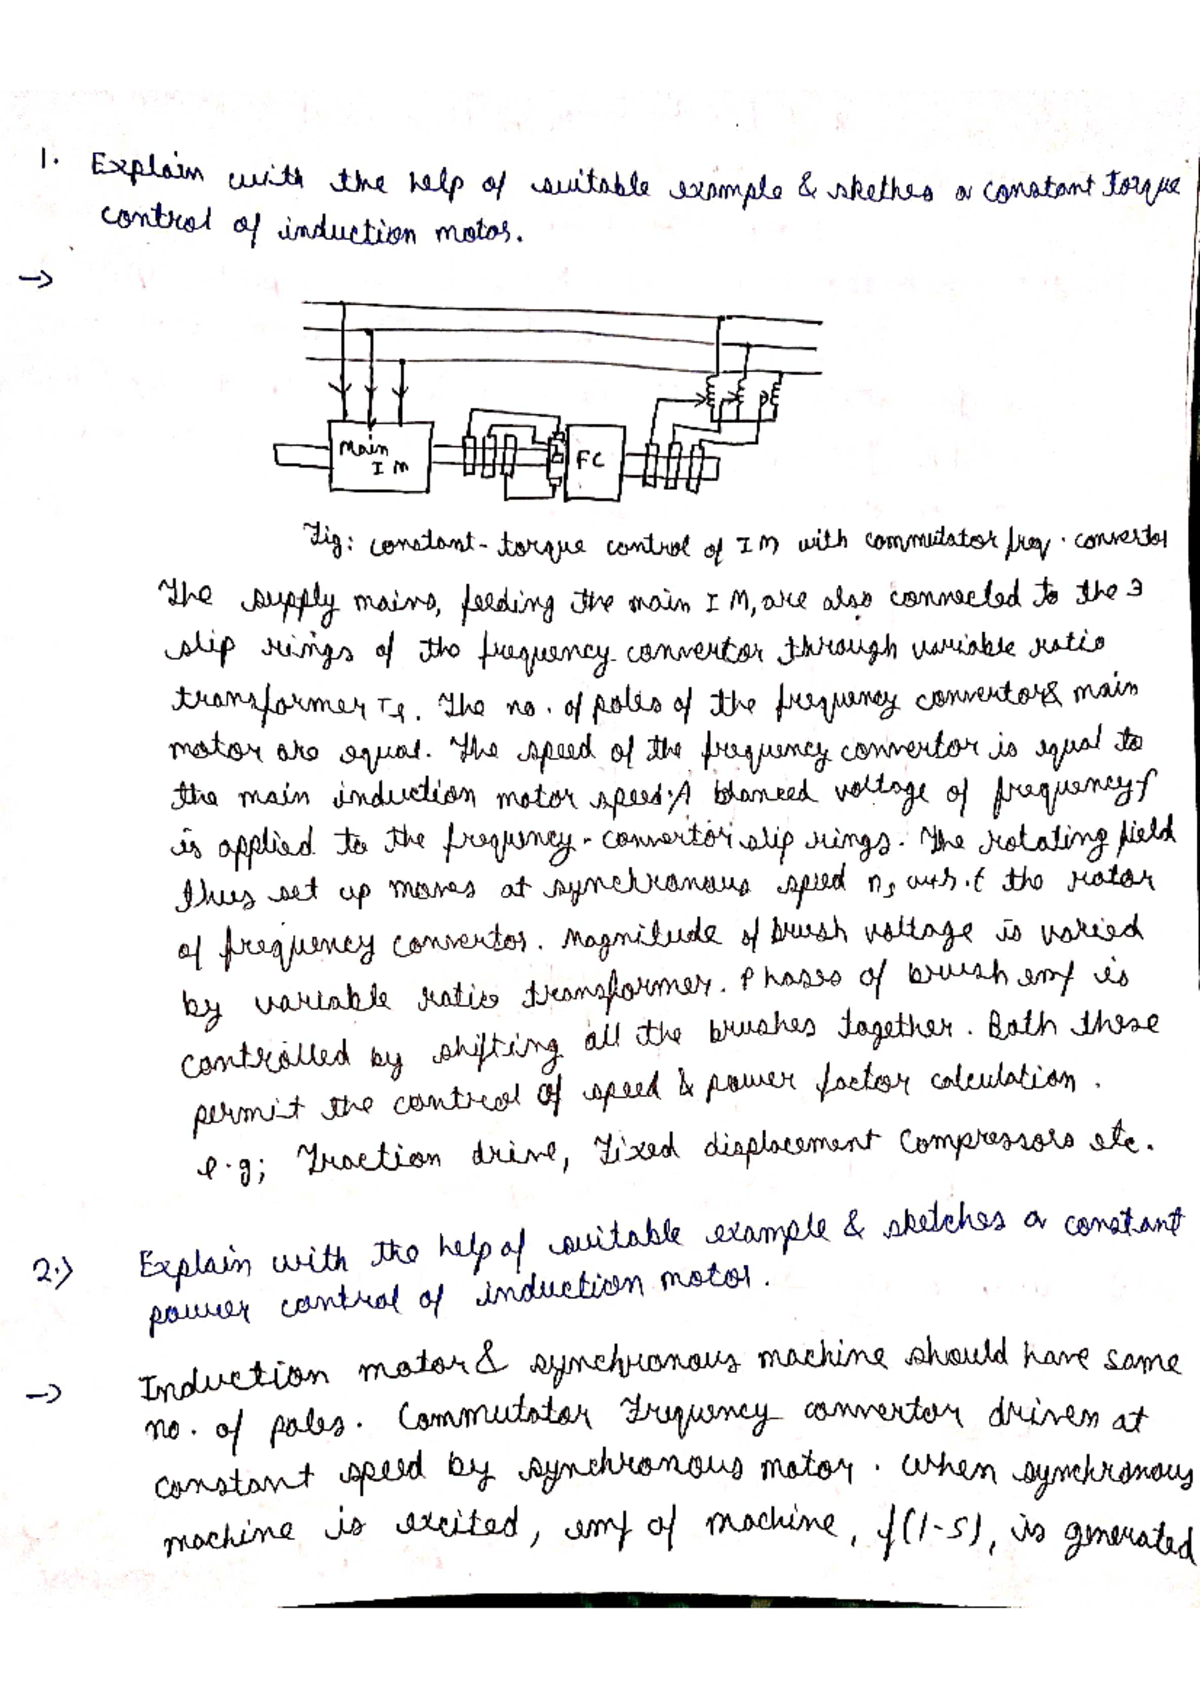 1. Explain with the help of suitable example & skethes a constant torque
control of induction motor.
→
Main
I M
FC
Fig: constant-torque control of I M with commutator freq. convertor
The supply mains, feeding the main I M, are also connected to the 3
slip rings of the frequency convertor through variable ratio
transformer . The no. of poles of the frequency convertor & main
motor are equal. The speed of the frequency convertor is equal to
the main induction motor speed. A blanced voltage of frequency f
is applied to the frequency-convertor slip rings. The rotating field
thus set up moves at synchronous speed ns w.r.t the rotor
of frequency convertor. Magnitude of brush voltage is varied
by variable ratio transformer. Phases of brush emf is
controlled by shifting all the brushes together. Both these
permit the control of speed & power factor calculation.
e.g; Traction drive, Fixed displacement Compressors etc.
2.) Explain with the help of suitable example & sketches a constant
power control of induction motor.
→ Induction motor & synchronous machine should have same
no. of poles. Commutator Frequency convertor driven at
constant speed by synchronous motor. When synchronous
machine is excited, emf of machine, f(1-s), is generated